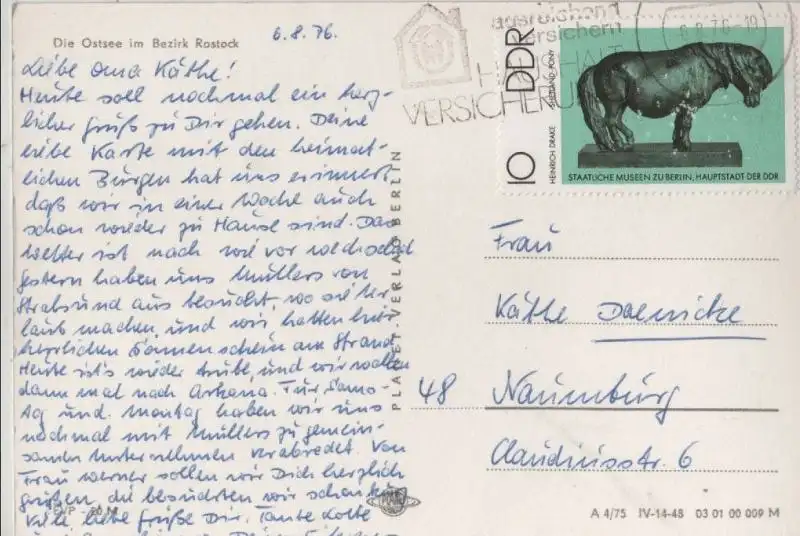 6.8.76.
Die Ostsee im Bezirk Rostock
Liebe Oma Käthe!
Heute soll nochmal ein herz-
licher Gruß zu Dir gehen. Deine
liebe Karte mit den heimat-
lichen Burgen hat uns erinnert,
daß wir in einer Woche auch
schon wieder zu Hause sind. Das
Wetter ist nach wie vor wechselnd
gestern haben uns Müllers von
Stralsund aus besucht, wo sie Ur-
laub machen, und wir hatten
herrlichen Sonnenschein am Strand.
Heute ist's wieder trübe, und wir wollen
dann mal nach Arkona. Für Sams-
tag und Montag haben wir uns
nochmal mit Müllers zu gemein-
samen Unternehmen verabredet. Von
Frau Werner sollen wir Dich herzlich
grüßen, die besuchten wir schon
Viele liebe Grüße Dir, Tante Lotte
EVP -20 M
PLANET-VERLAG BERLIN
ausreichend
versichern
HAUSHALT
VERSICHERUNG
6.8.76-19
10 DDR
HEINRICH DRAKE SHETLAND-PONY
STAATLICHE MUSEEN ZU BERLIN, HAUPTSTADT DER DDR
Frau
Käthe Doenicke
48 Naumburg
Claudiusstr. 6
A 4/75 IV-14-48 03 01 00 009 M